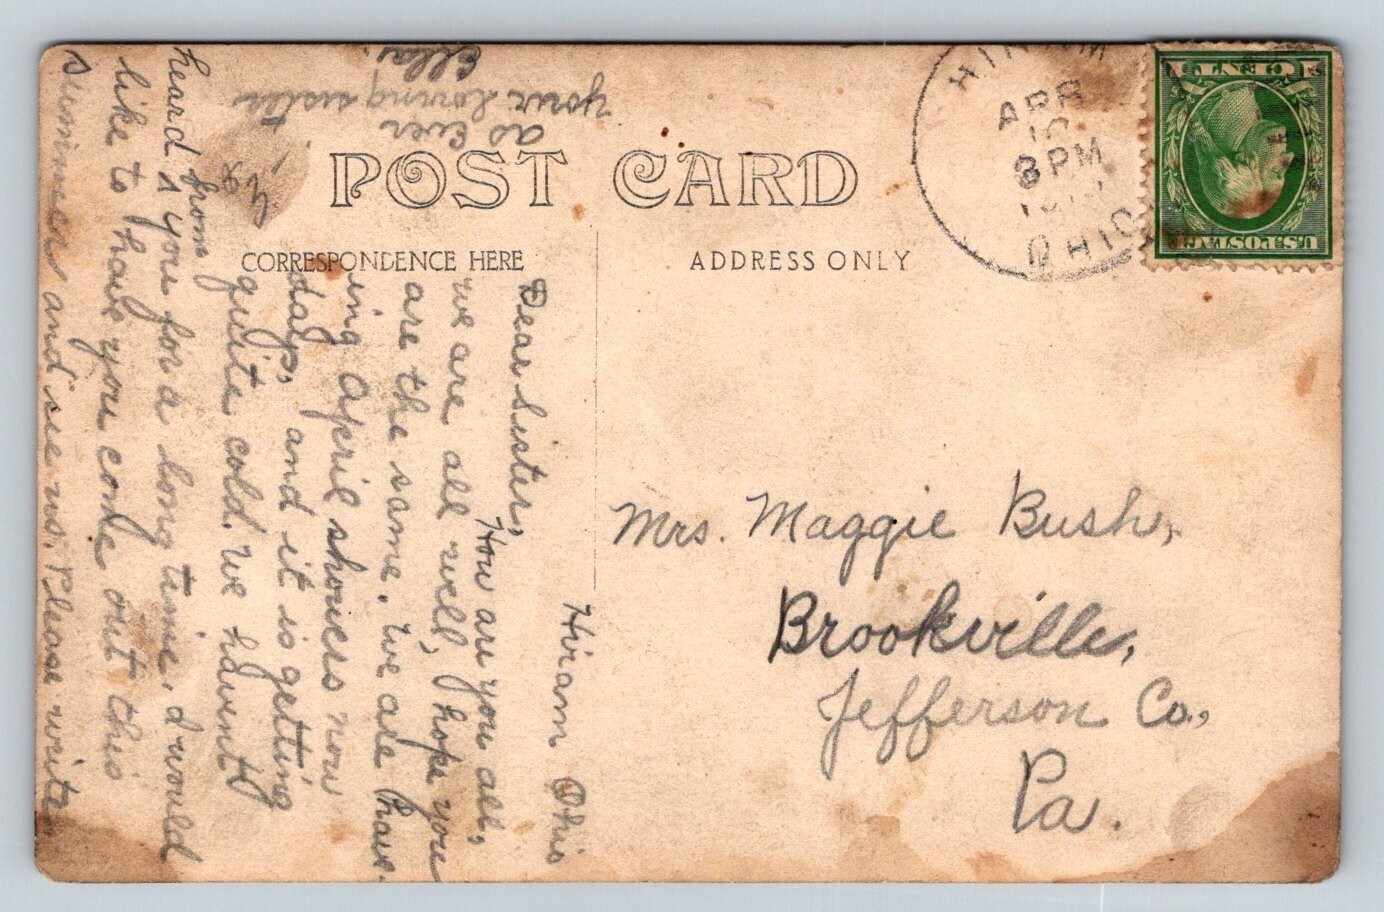 POST CARD
CORRESPONDENCE HERE
ADDRESS ONLY
HIRAM
APR
10
8 PM
OHIO
U.S. POSTAGE
1 CENT 1
Mrs. Maggie Bush,
Brookville,
Jefferson Co.,
Pa.
Hiram Ohio
Dear Sister,
How are you all,
we are all well, hope you
are the same. We are hav-
ing April showers now
days, and it is getting
quite cold. We havent
heard from you for a long time. I would
like to have you come out this
summer and see us. Please write
as Ever
your loving sister
Ella.